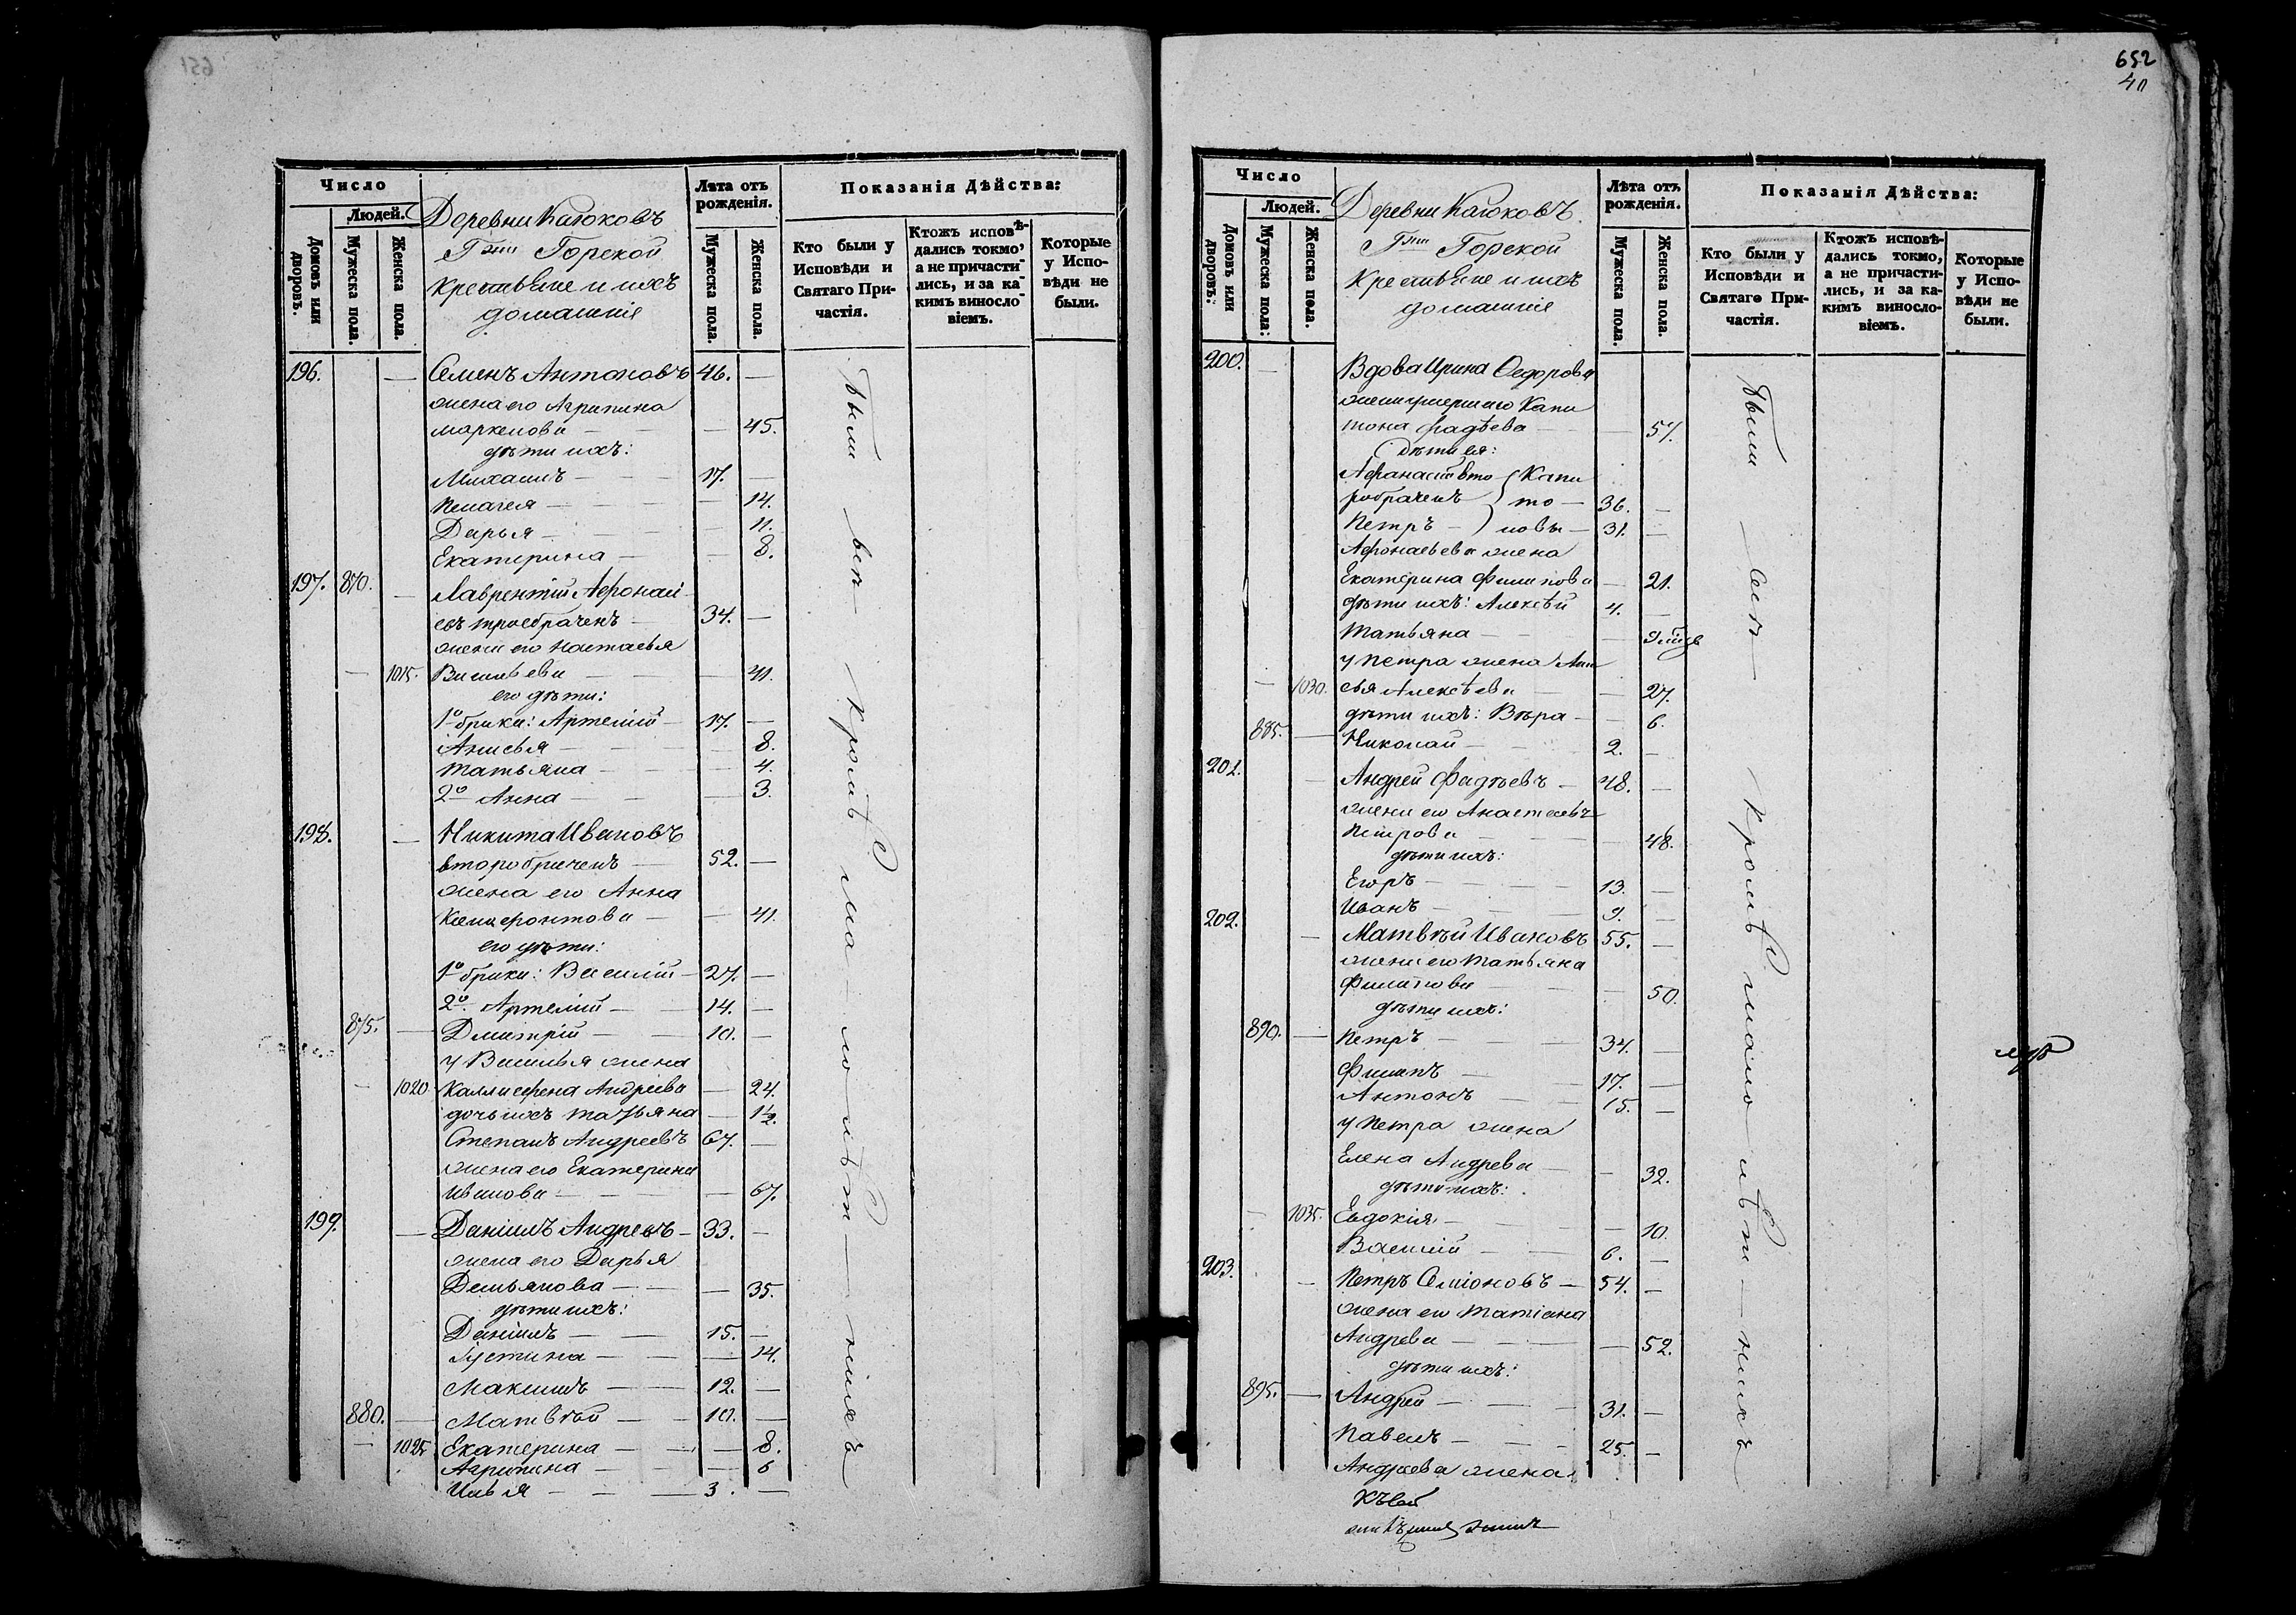 651
Число
Людей.
Домовъ или дворовъ.
Мужеска пола.
Женска пола.
Деревни
Гжи Горской
крестьяне и ихъ
домашнiе
Лѣта отъ рожденія.
Мужеска пола.
Женска пола.
Показанія Дѣйства:
Кто были у
Исповѣди и
Святаго При-
частія.
Ктожъ исповѣ-
дались токмо,
а не причасти-
лись, и за ка-
кимъ виносло-
віемъ.
Которые
у Испо-
вѣди не
были.
196. — Семенъ Антоновъ 46. —
жена его Агрипина
маркелова — — 45.
дѣти ихъ:
Михаилъ — 17. —
Пелагея — — 14.
Дарья — — 11.
Екатерина — — 8.
197. 870. — Лаврентій Афонась-
евъ троебраченъ — 34. —
жена его Настасья
— 1015. Васильева — — 41.
его дѣти:
1го брака: Артемій — 17. —
Анисья — — 8.
Татьяна — — 4.
2го Анна — — 3.
198. — Никита Ивановъ
второбраченъ — 52. —
жена его Анна
— — 41.
его дѣти:
1го брака: Василій — 27. —
2го Артемій — 14. —
875. — Дмитрій — 10. —
у Василья жена
— 1020 Андреева — 24.
дочь ихъ Татьяна — 1½.
Степанъ Андреевъ 67. —
жена его Екатерина
Иванова — — 67.
199. — Даніилъ Андреевъ — 33. —
жена его Дарья
Демьянова — — 35.
дѣти ихъ:
Даніилъ — 15. —
Устина — — 14.
Максимъ — 12. —
880. — Матвѣй — 10. —
— 1025 Екатерина — — 8.
Агрипина — — 6
Илья — 3. —
Были всѣ кромѣ малолѣтнихъ
652
40
Число
Людей.
Домовъ или дворовъ:
Мужеска пола:
Женска пола.
Деревни
Гжи Горской
Крестьяне и ихъ
домашнiе
Лѣта отъ рожденія.
Мужеска пола.
Женска пола.
Показанія Дѣйства:
Кто были у
Исповѣди и
Святаго При-
частія.
Ктожъ исповѣ-
дались токмо,
а не причасти-
лись, и за ка-
кимъ винosло-
віемъ.
Которые
у Испо-
вѣди не
были.
200. — Вдова Ирина Ѳедорова
жена умершаго Капи
тона Фадѣева — — 57.
Дѣти ея:
Афанасій вто- Капи
робраченъ то — 36. —
Петръ — новы — 31. —
Афонасьева жена
Екатерина Филипова — 21.
дѣти ихъ: Алексѣй 4. —
Татьяна —
у Петра жена Ани
— 1030. сья Алексѣева — — 27.
дѣти ихъ: Вѣра — — 6.
885. — Николай — 2. —
201. — Андрей Фадѣевъ — 48. —
жена его
Петрова — — 48.
дѣти ихъ:
Егоръ — 13. —
Иванъ — 9. —
202. — Матвѣй Ивановъ 55. —
жена его Татьяна
Филипова — — 50.
дѣти ихъ:
890. — Петръ — 34. —
Филипъ — 17. —
Антонъ — 15. —
у Петра жена
Елена Андрева — — 32.
дѣти ихъ:
— 1035. Евдокія — — 10.
Василій — 6. —
203. — Петръ Семіоновъ — 54. —
жена его Татіана
Андрева — — 52.
дѣти ихъ:
895. — Андрей — 31. —
Павелъ — 25. —
Андреева жена
Были всѣ кромѣ малолѣтнихъ